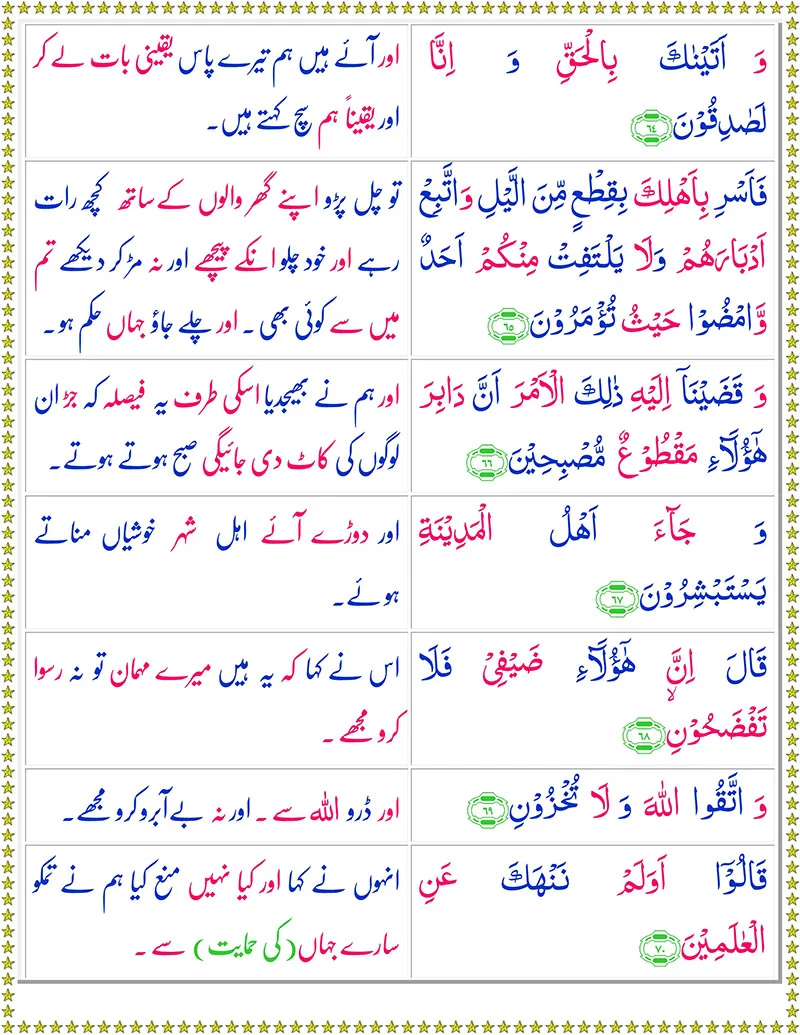 وَ اَتَيْنٰكَ بِالْحَقِّ وَ اِنَّا
لَصٰدِقُوْنَ ٦٤
اور آئے ہیں ہم تیرے پاس یقینی بات لے کر
اور یقیناً ہم سچ کہتے ہیں۔
فَاَسْرِ بِاَهْلِكَ بِقِطْعٍ مِّنَ الَّيْلِ وَاتَّبِعْ
اَدْبَارَهُمْ وَلَا يَلْتَفِتْ مِنْكُمْ اَحَدٌ
وَّامْضُوْا حَيْثُ تُؤْمَرُوْنَ ٦٥
تو چل پڑو اپنے گھر والوں کے ساتھ کچھ رات
رہے اور خود چلو انکے پیچھے اور نہ مڑ کر دیکھے تم
میں سے کوئی بھی۔ اور چلے جاؤ جہاں حکم ہو۔
وَ قَضَيْنَاۤ اِلَيْهِ ذٰلِكَ الْاَمْرَ اَنَّ دَابِرَ
هٰۤؤُلَآءِ مَقْطُوْعٌ مُّصْبِحِيْنَ ٦٦
اور ہم نے بھیجدیا اسکی طرف یہ فیصلہ کہ جڑ ان
لوگوں کی کاٹ دی جائیگی صبح ہوتے ہوتے۔
وَ جَآءَ اَهْلُ الْمَدِيْنَةِ
يَسْتَبْشِرُوْنَ ٦٧
اور دوڑے آئے اہل شہر خوشیاں مناتے
ہوئے۔
قَالَ اِنَّ هٰۤؤُلَآءِ ضَيْفِىْ فَلَا
تَفْضَحُوْنِ ۙ ٦٨
اس نے کہا کہ یہ ہیں میرے مہمان تو نہ رسوا
کرو مجھے ۔
وَ اتَّقُوا اللّٰهَ وَ لَا تُخْزُوْنِ ٦٩
اور ڈرو اللہ سے ۔ اور نہ بے آبرو کرو مجھے۔
قَالُوْۤا اَوَلَمْ نَنْهَكَ عَنِ
الْعٰلَمِيْنَ ٧٠
انہوں نے کہا اور کیا نہیں منع کیا ہم نے تمکو
سارے جہاں (کی حمایت) سے ۔